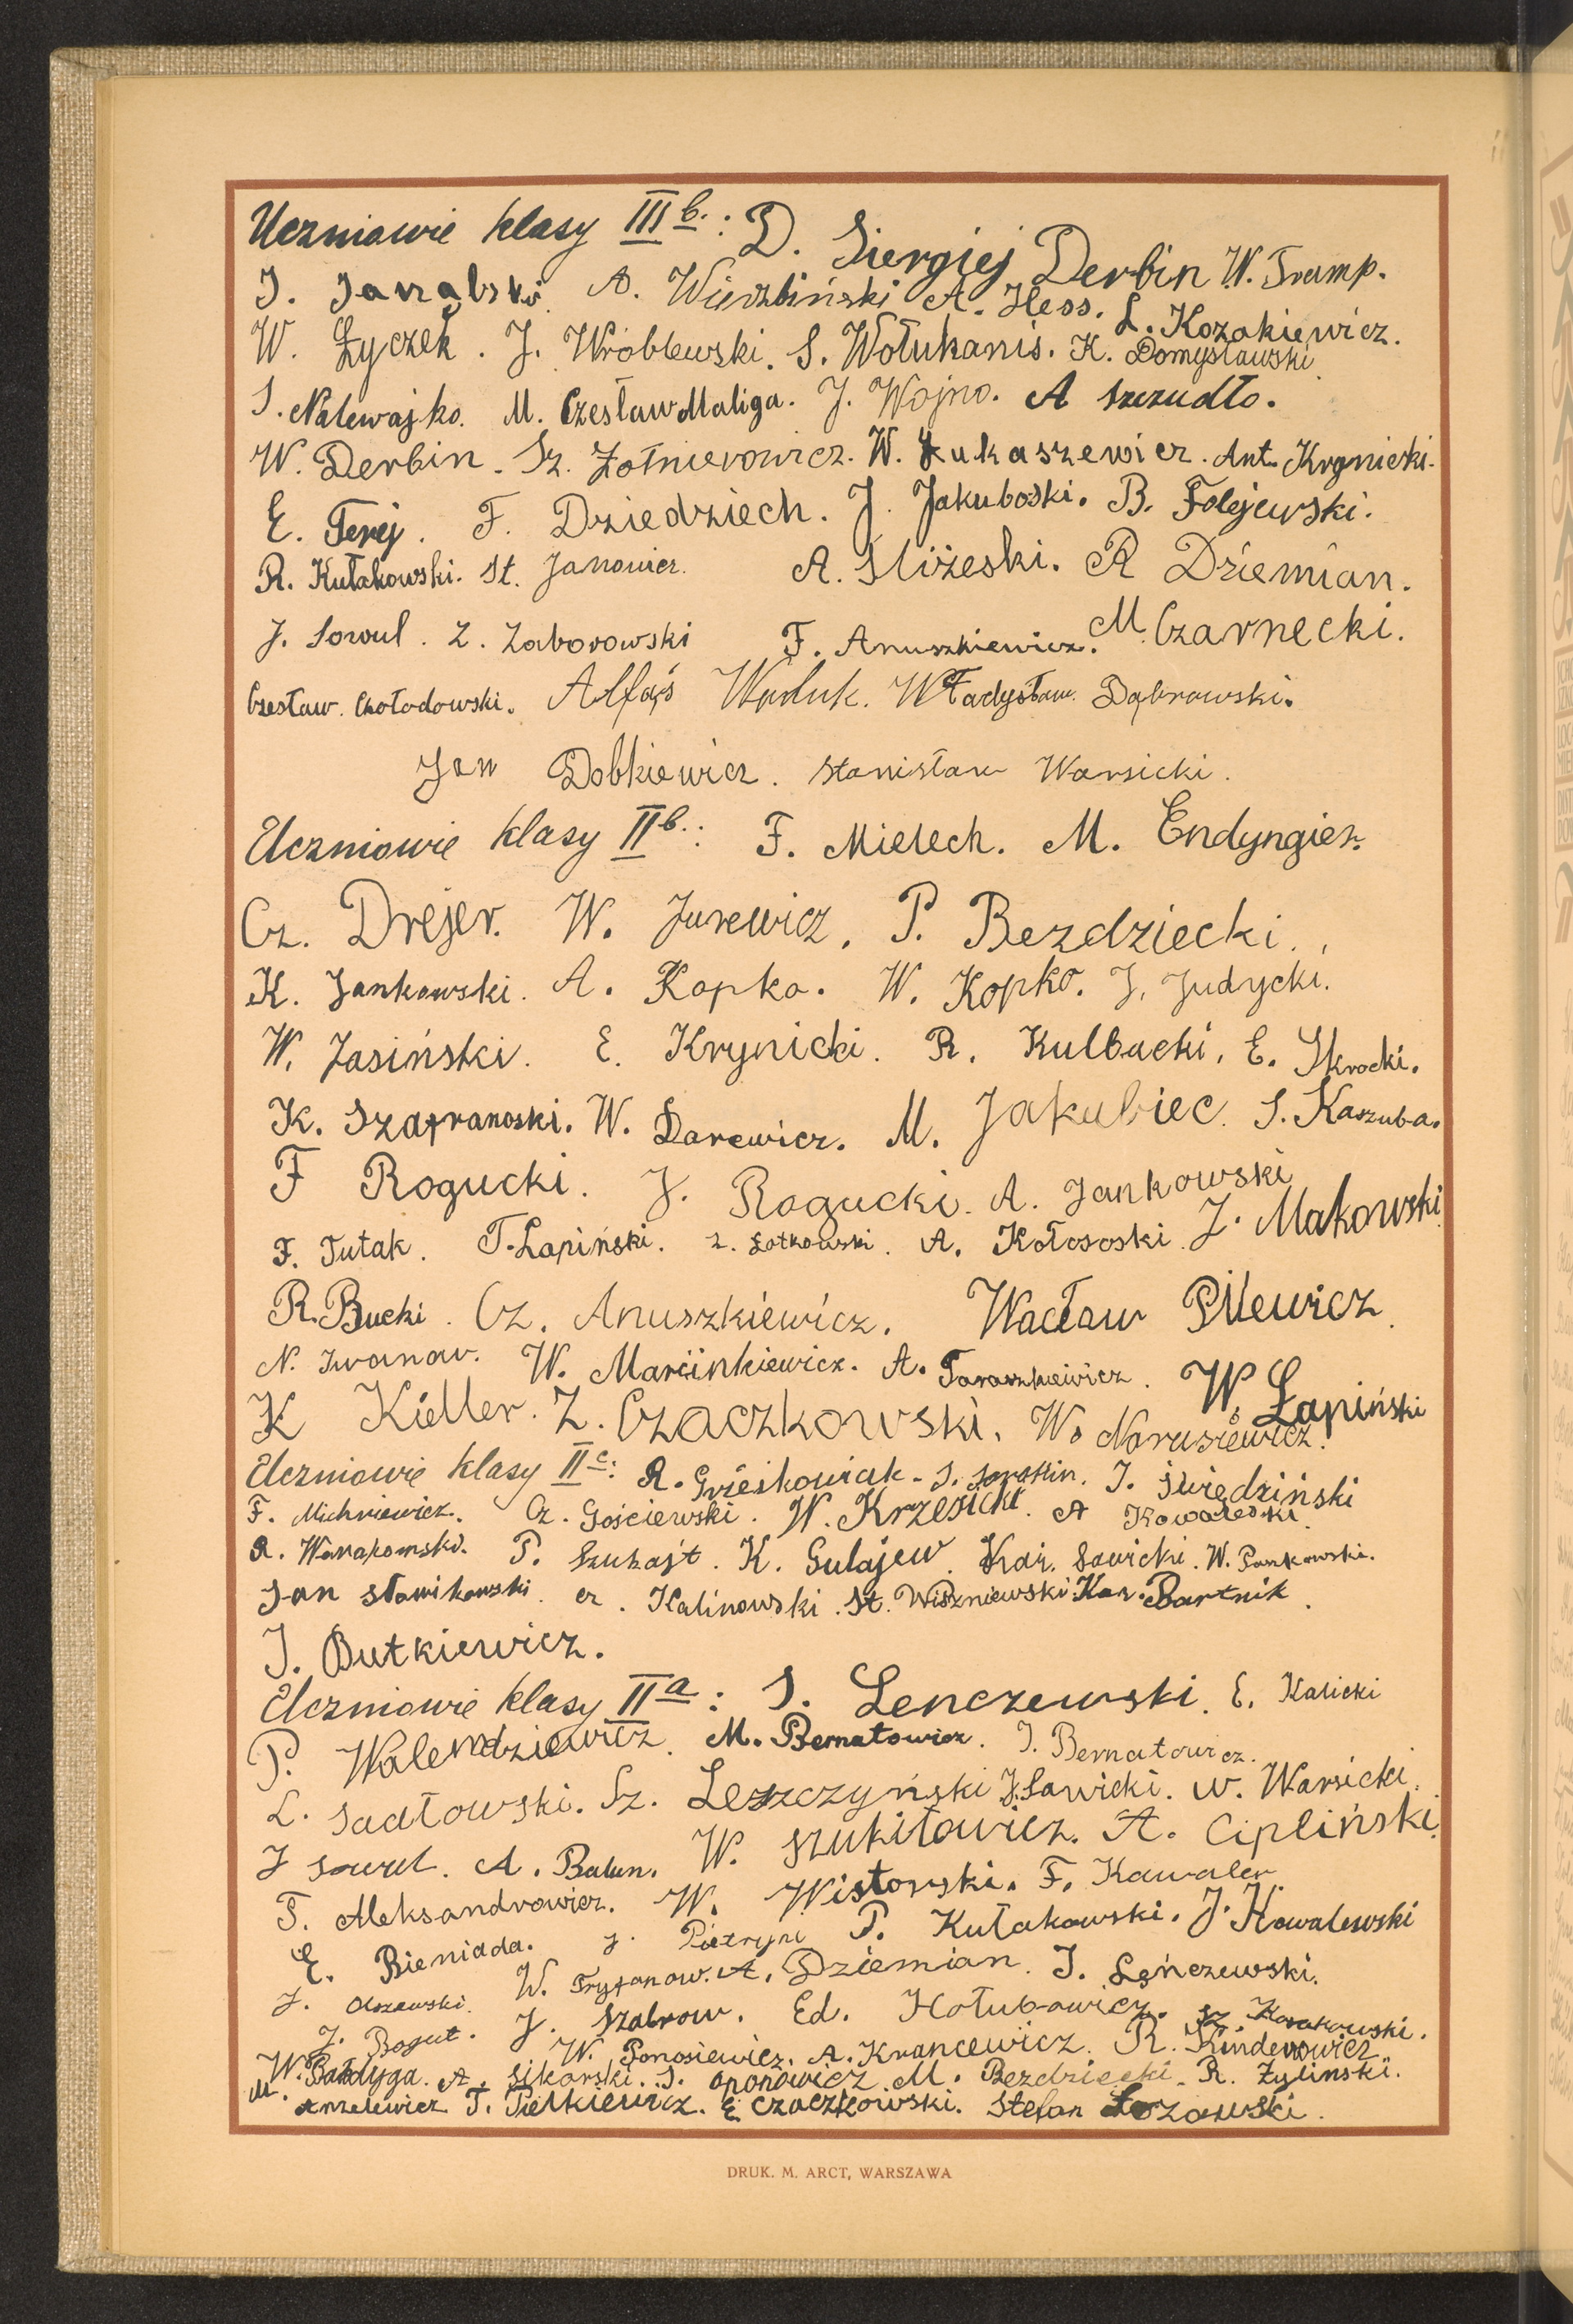 Uczniowie klasy III b.: D. Siergiej Derbin W. Tramp.
J. A. Wierzbiński A. Hess. L. Kozakiewicz.
W. Życzek. J. Wróblewski. S. Wołukanis. K. Domysławski
S. Nalewajko. M. Czesław Maliga. J. Wojno. A Szczudło.
W. Derbin. Sz. Żołnierowicz. W. Łukaszewicz. Ant. Krynicki.
E. Terej. F. Dziedziech. J. Jakuboski. B. Folejewski.
R. Kułakowski. St. Janowicz. A. Sliżeski. R Dziemian.
J. Sowul. Z. Zaborowski F. Anuszkiewicz. M. Czarnecki.
Czesław. Chołodowski. Władysław. Dąbrowski.
Jan Dobkiewicz. Stanisław Warsicki.
Uczniowie klasy II b.: F. Mielech. M. Endyngier.
Cz. Drejer. W. Jurewicz. P. Bezdziecki.
K. Jankowski. A. Kopko. W. Kopko. J. Judycki.
W. Jasiński. E. Krynicki. R. Kulbacki. E. Skrocki.
K. Szafranoski. W. Darewicz. M. Jakubiec. S. Kaszuba.
F Rogucki. J. Rogucki. A. Jankowski
F. Tutak. T. Łapiński. Z. A. Kołososki. J. Makowski
R. Bucki. Cz. Anuszkiewicz. Wacław Pilewicz.
N. Iwanow. W. Marcinkiewicz. A. Taraszkiewicz. W. Łapiński
K Kieller. Z. Czaczkowski. W. Narusiewicz.
Uczniowie klasy II c: R. Grześkowiak. J. Świędziński
F. Michniewicz. Cz. Gościewski. W. Krzesicki. A Kowaleski.
R. P. Szukajt. K. Gulajew. Kaz. Sawicki. W. Pankowski.
Jan Sławikowski. cz. Kalinowski. St. Wiszniewski. Kaz. Bartnik.
J. Butkiewicz.
Uczniowie klasy II a: S. Lenczewski. E. Kasicki
P. Walendziewicz. M. Bernatowicz. J. Bernatowicz.
L. Sadłowski. Sz. Leszczyński J. Sawicki. W. Warsicki.
J Sowul. A. Balun. W. Szukiłowicz. A. Cipliński.
T. Aleksandrowicz. W. Wistowski. F. Kawaler
E. Bieniada. J. P. Kułakowski. J. Kowalewski
J. Olszewski. W. Tryfanow. A. Dziemian. J. Leńczewski.
J. Bogut. J. Szabrow. Ed. Hołubowicz. Sz. Korakowski.
W. Bałdyga. A. Sikorski. W. Ponosiewicz. A. Krancewicz. R. Kinderowicz
M. Anzelewicz T. Pietkiewicz. J. Oponowicz M. Bezdziecki. R. Żyliński.
E Czaczkowski. Stefan Łozowski.
DRUK. M. ARCT, WARSZAWA